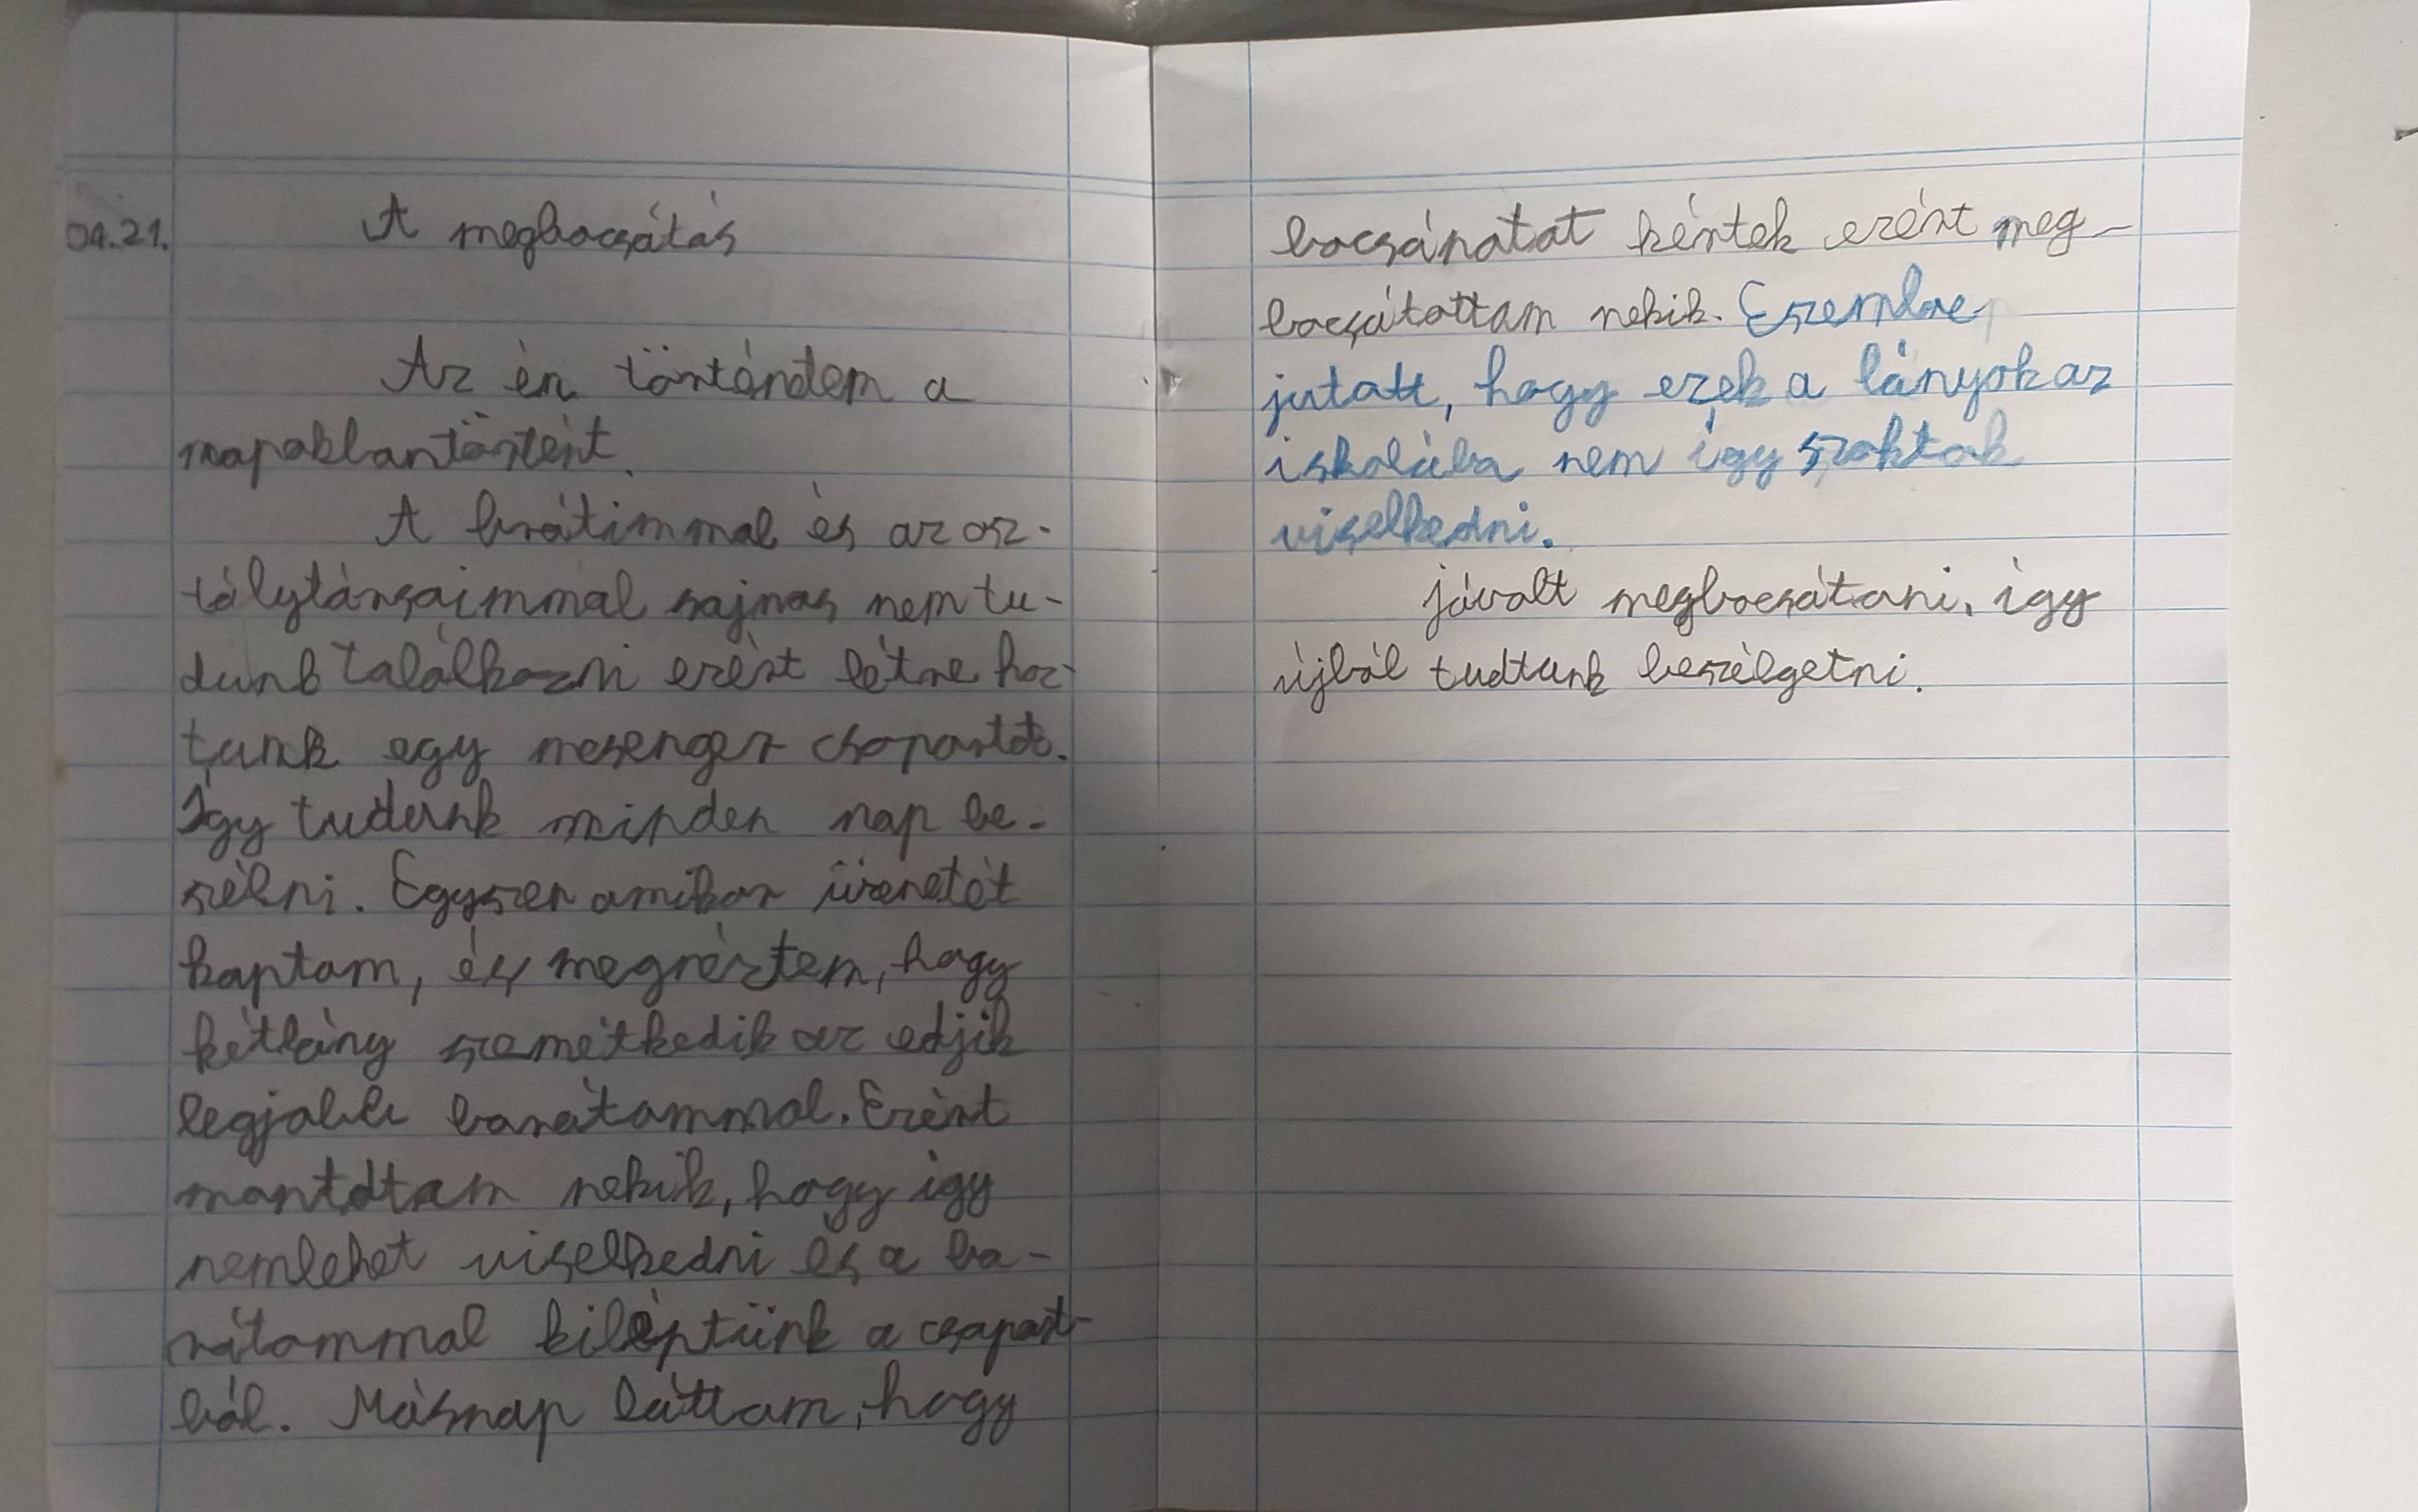 04.21. A megbocsátás
Az én történetem a
napokban történt.
A barátimmal és az osz-
tálytársaimmal sajnos nem tu-
dunk találkozni ezért létre hoz-
tunk egy mesenger csoportot.
Így tudunk minden nap be-
szélni. Egyszer amikor üzenetet
kaptam, és megnéztem, hogy
kétlány szemétkedik az edjik
legjobb barátommal. Ezért
mondtam nekik, hogy így
nemlehet viselkedni és a ba-
rátommal kiléptünk a csoport-
ból. Másnap láttam, hogy
bocsánatot kértek ezért meg-
bocsátottam nekik. Eszembe
jutott, hogy ezek a lányok az
iskolába nem így szoktak
viselkedni.
jóvolt megbocsátani, így
újból tudtunk beszélgetni.